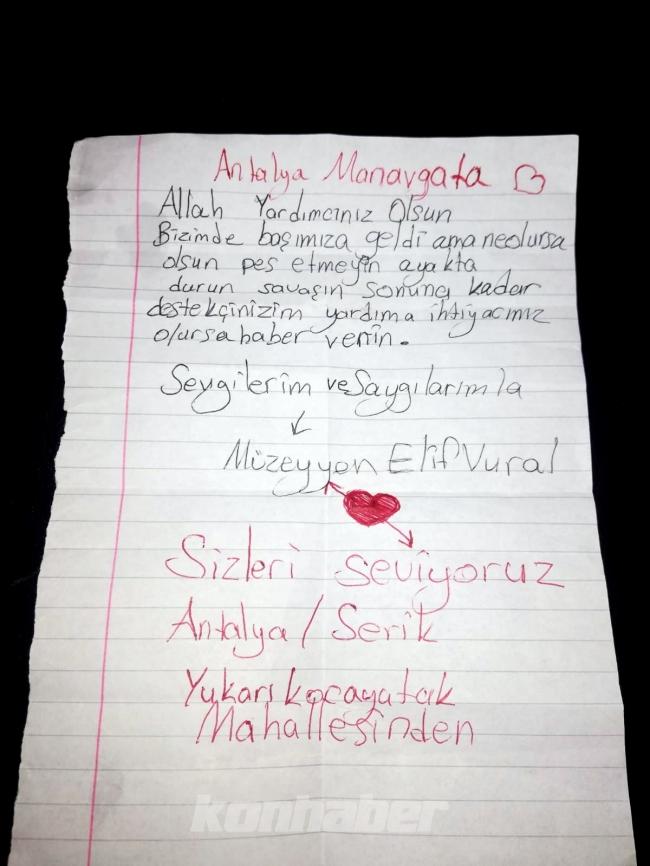 Antalya Manavgata
Allah Yardımcınız Olsun
Bizimde başımıza geldi ama neolursa
olsun pes etmeyin ayakta
durun savaşın sonuna kadar
destekçinizim yardıma ihtiyacınız
olursa haber verin.
Sevgilerim ve Saygılarımla
Müzeyyen Elif Vural
Sizleri seviyoruz
Antalya / Serik
Yukarı kocayatak
Mahallesinden
konhaber